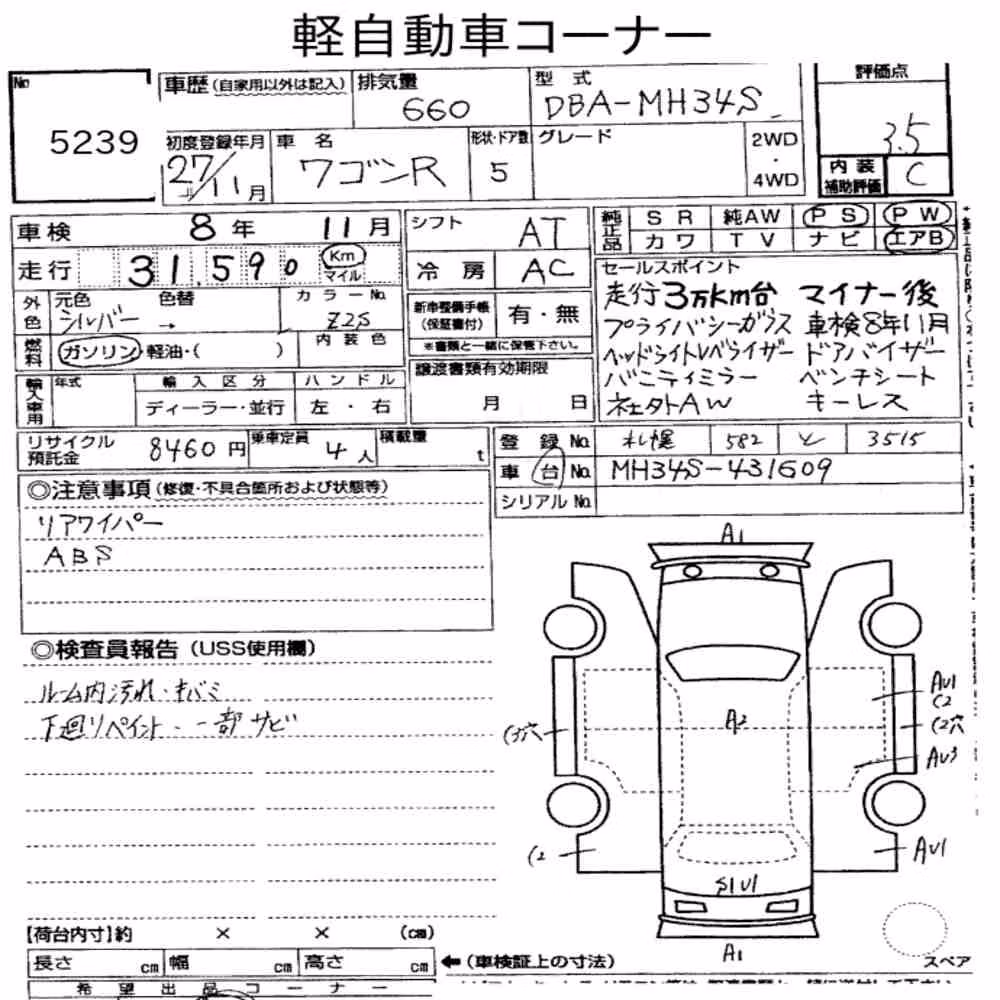 軽自動車コーナー
No 5239
車歴 (自家用以外は記入)
排気量 660
型式 DBA-MH34S
評価点 3.5
初度登録年月 27/11月
車名 ワゴンR
形状・ドア数 5
グレード
2WD・4WD
内装補助評価 C
車検 8年 11月
シフト AT
純正品 SR 純AW PS PW
カワ TV ナビ エアB
走行 31,590 Km マイル
冷房 AC
セールスポイント
走行3万km台 マイナー後
プライバシーガラス 車検8年11月
ヘッドライトレベライザー ドアバイザー
バニティミラー ベンチシート
社外AW キーレス
外色 元色 シルバー → 色替
カラーNo. Z2S
新車整備手帳 (保証書付) 有・無
※書類と一緒に保管下さい。
燃料 ガソリン・軽油・( )
内装色
譲渡書類有効期限
月 日
輸入車用 年式 輸入区分 ハンドル
ディーラー・並行 左・右
リサイクル預託金 8460円
乗車定員 4人
積載量 t
登録No. 札幌 582 と 3515
車台No. MH34S-431609
シリアルNo.
◎注意事項 (修復・不具合箇所および状態等)
リアワイパー
ABS
◎検査員報告 (USS使用欄)
ルーム内汚れ・キバミ
下廻リペイント・一部サビ
A1
AU1
C2
A2
C2穴
C3穴
AU3
C2
AU1
S1U1
A1
【荷台内寸】約 × × (cm)
長さ cm 幅 cm 高さ cm
←(車検証上の寸法)
スペア
希望出品コーナー